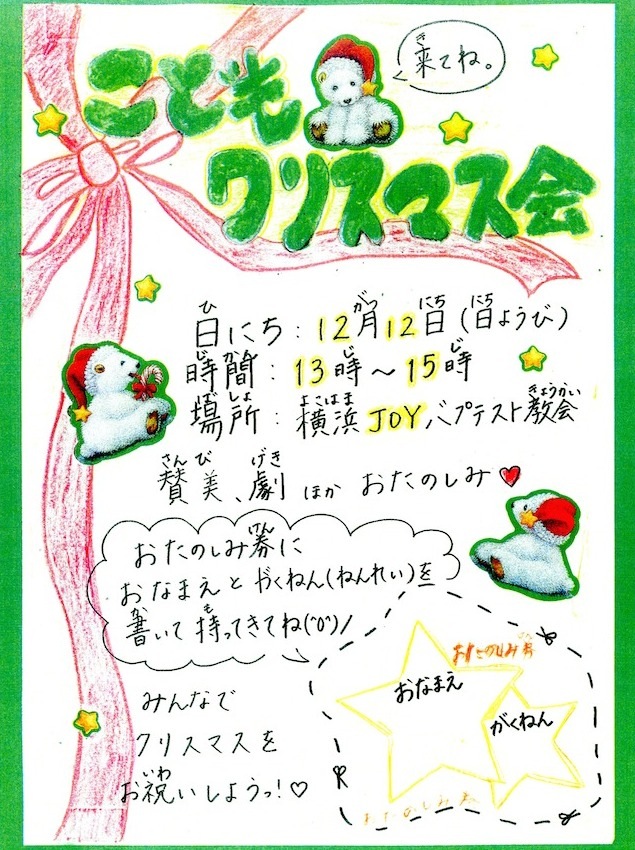 こども
来てね。
クリスマス会
日にち：12月12日(日ようび)
時間：13時～15時
場所：横浜JOYバプテスト教会
賛美、劇 ほか おたのしみ♥
おたのしみ券に
おなまえと がくねん(ねんれい)を
書いて 持ってきてね(^o^)/
おたのしみ券
おなまえ
がくねん
おたのしみ券
みんなで
クリスマスを
お祝いしようっ!♡